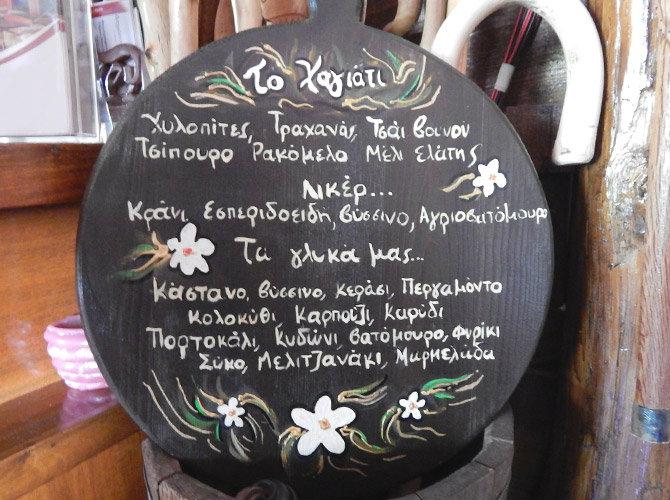 Το Χαγιάτι
Χυλοπίτες, Τραχανάς, Τσάι βουνού
Τσίπουρο Ρακόμελο Μέλι ελάτης
Λικέρ...
Κράνι, Εσπεριδοειδή, Βύσσινο, Αγριοβατόμουρο
Τα γλυκά μας...
Κάστανο, βύσσινο, κεράσι, Περγαμόντο
Κολοκύθι Καρπούζι, Καρύδι
Πορτοκάλι, Κυδώνι, Βατόμουρο, Φιρίκι
Σύκο, Μελιτζανάκι, Μαρμελάδα